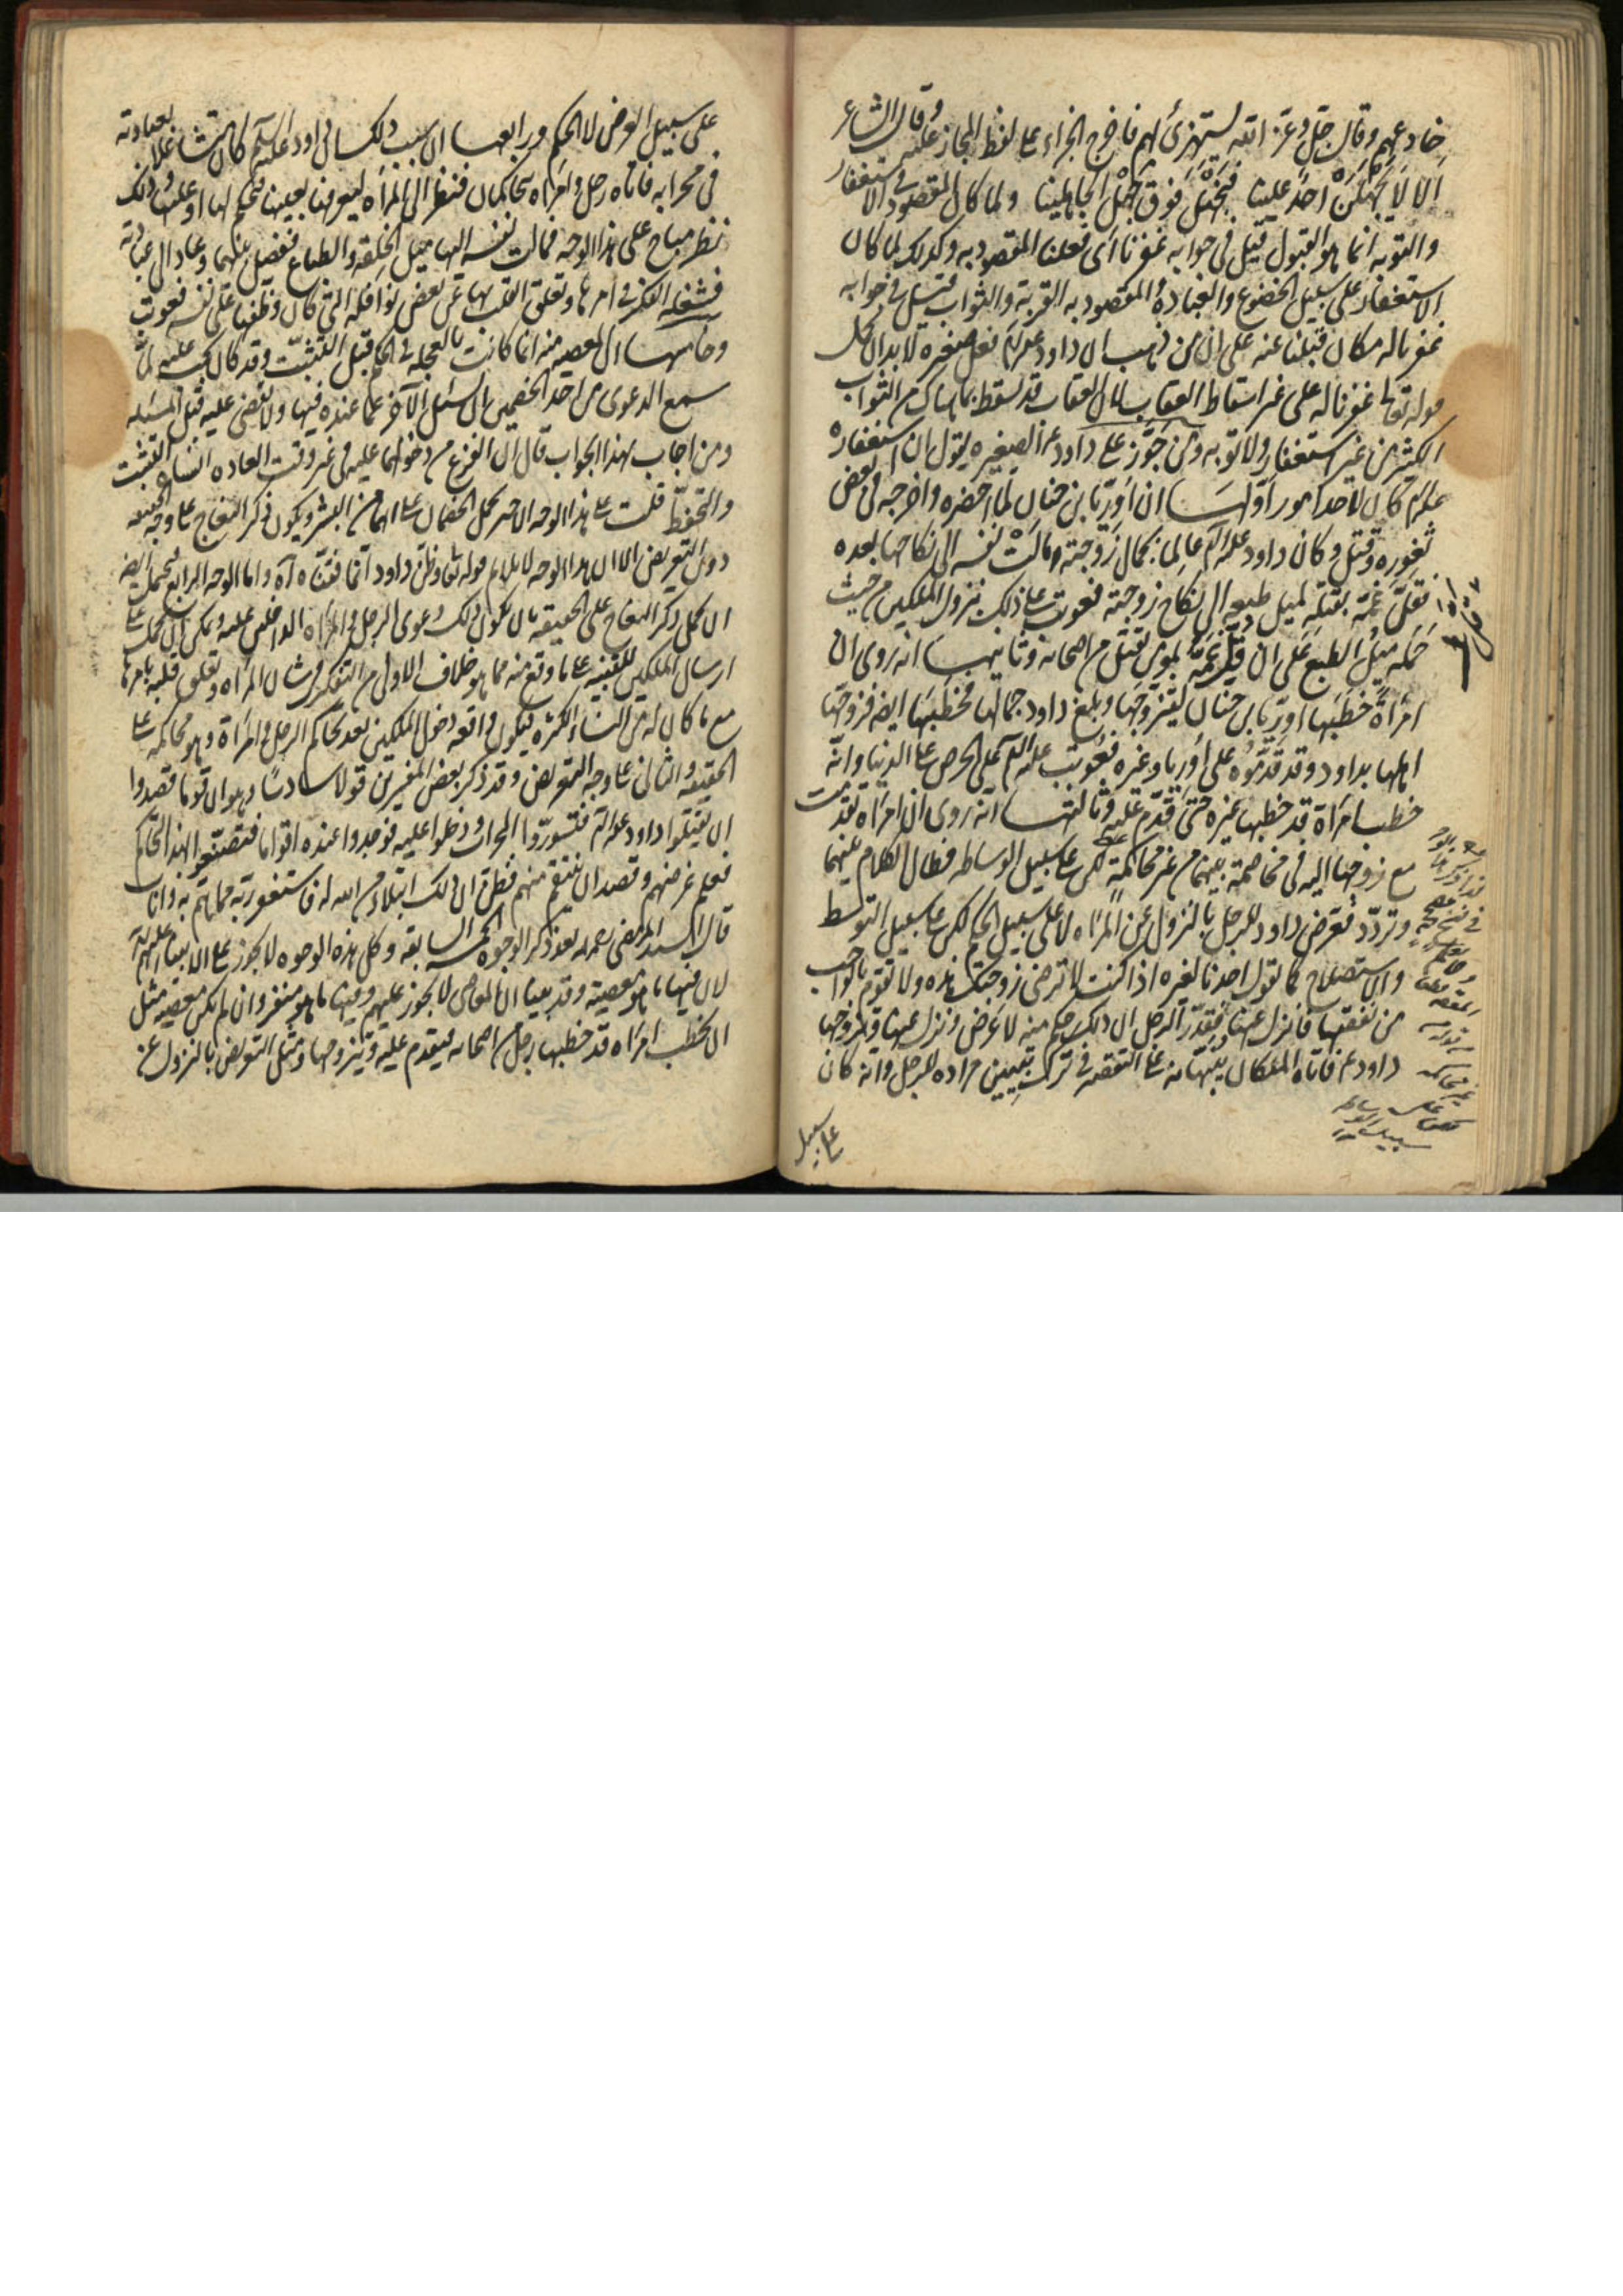 خادعهم وقال جل وعز الله يستهزئ بهم فاخرج الجزاء على لفظ المجاز عليه وقال الشاعر
الا لا يجهلن احد علينا فنجهل فوق جهل الجاهلينا ولما كان المقصود في الاستغفار
والتوبة انما هو القبول قيل في جوابه غفرنا اى فعلنا المقصود به وكذلك لما كان
الاستغفار على سبيل الخضوع والعبادة والمقصود به القربة والثواب قيل في جوابه
غفرنا له مكان قبلنا عنه على ان من ذهب الى ان داود عليه السلام فعل صغيرة لابد ان يحمل
قوله تعالى غفرنا له على غير اسقاط العقاب لان العقاب قد سقط بما هناك من الثواب
الكثير من غير استغفار ولا توبة ومن جوز على داود ع الصغيرة يقول ان استغفاره
عليه السلام كان لاحد امور اولها ان اوريا بن حنان لما احضره واخرجه في بعض
ثغوره وقتل وكان داود عليه السلام عالما بجمال زوجته ومالت نفسه الى نكاحها بعده
فقل غمه بقتله لميل طبعه الى نكاح زوجته فعوتب على ذلك بنزول الملكين من حيث
حمله ميل الطبع على ان قل غمه بمؤمن قتل من اصحابه وثانيها انه روى ان
امرأة خطبها اوريا بن حنان ليتزوجها وبلغ داود جمالها فخطبها ايضا فزوجها
اهلها بداود وقد قدموه على اوريا وغيره فعوتب عليه السلام على الحرص على الدنيا وانه
خطب امرأة قد خطبها غيره حتى قدم عليه وثالثها انه روى ان امرأة تقدمت
مع زوجها اليه في مخاصمة بينهما من غير محاكمة لكن على سبيل الوساطة فطال الكلام بينهما
وتردد فعرض داود للرجل بالنزول عن المرأة لا على سبيل الحكم لكن على سبيل التوسط
والاستصلاح كما يقول احدنا لغيره اذا كنت لا ترضى زوجتك هذه ولا تقوم بالواجب
من نفقتها فانزل عنها فقدر الرجل ان ذلك حكم منه لا تعرض ونزل عنها وتزوجها
داود ع فاتاه الملكان ينبهانه على التقصير في ترك تبيين مراده للرجل وانه كان
على سبيل
على سبيل العرض لا الحكم ورابعها ان سبب ذلك ان داود عليه السلام كان متشاغلا بعبادته
في محرابه فاتاه رجل وامرأة يتحاكمان فنظر الى المرأة ليعرفها بعينها فيحكم لها او عليها وذلك
نظر مباح على هذا الوجه فمالت نفسه اليها ميل الخلقة والطباع ففصل بينهما وعاد الى عبادته
فشغله الفكر في امرها وتعلق القلب بها عن بعض نوافله التي كان وظفها على نفسه فعوتب
وخامسها ان المعصية منه انما كانت بالعجلة في الحكم قبل التثبت وقد كان يجب عليه لما
سمع الدعوى من احد الخصمين ان يسئل الآخر عما عنده فيها ولا يقضى عليه قبل المسئلة
ومن اجاب بهذا الجواب قال ان الفزع من دخولهما عليه في غير وقت العادة انساه التثبت
والتحفظ قلت على هذا الوجه الاخير يحمل الخصمان على انهما من البشر ويكون ذكر النعاج على وجه الحقيقة
دون التعريض الا ان هذا الوجه لا يلايم قوله تعالى وظن داود انما فتناه اه واما الوجه الرابع فيحتمل ايضا
ان يحمل ذكر النعاج على الحقيقة بان يكون ذلك دعوى الرجل والمرأة الداخلين عليه ويمكن ان يحمل على
ارسال الملكين للتنبيه على ما وقع منه مما هو خلاف الاولى من التفكر في شان المرأة وتعلق قلبه بامرها
مع ما كان له من النساء الكثيرة فيكون واقعة دخول الملكين بعد تحاكم الرجل والمرأة وهو محاكمة على
الحقيقة والثانى على وجه التعريض وقد ذكر بعض المفسرين قولا سادسا وهو ان قوما قصدوا
ان يقتلوا داود عليه السلام فتسوروا المحراب ودخلوا عليه فوجدوا عنده اقواما فتصنعوا بهذا التحاكم
فعلم غرضهم وقصد ان ينتقم منهم فظن ان ذلك ابتلاء من الله له فاستغفر ربه مما هم به واناب
قال السيد المرتضى رحمه الله بعد ذكر الوجوه الخمسة السابقة وكل هذه الوجوه لا يجوز على الانبياء عليهم السلام
لان فيها ما هو معصية وقد بينا ان المعاصى لا يجوز عليهم وفيها ما هو منفر وان لم يكن معصية مثل
ان يخطب امرأة قد خطبها رجل من اصحابه فيتقدم عليه ويتزوجها ومثل التعريض بالنزول عن